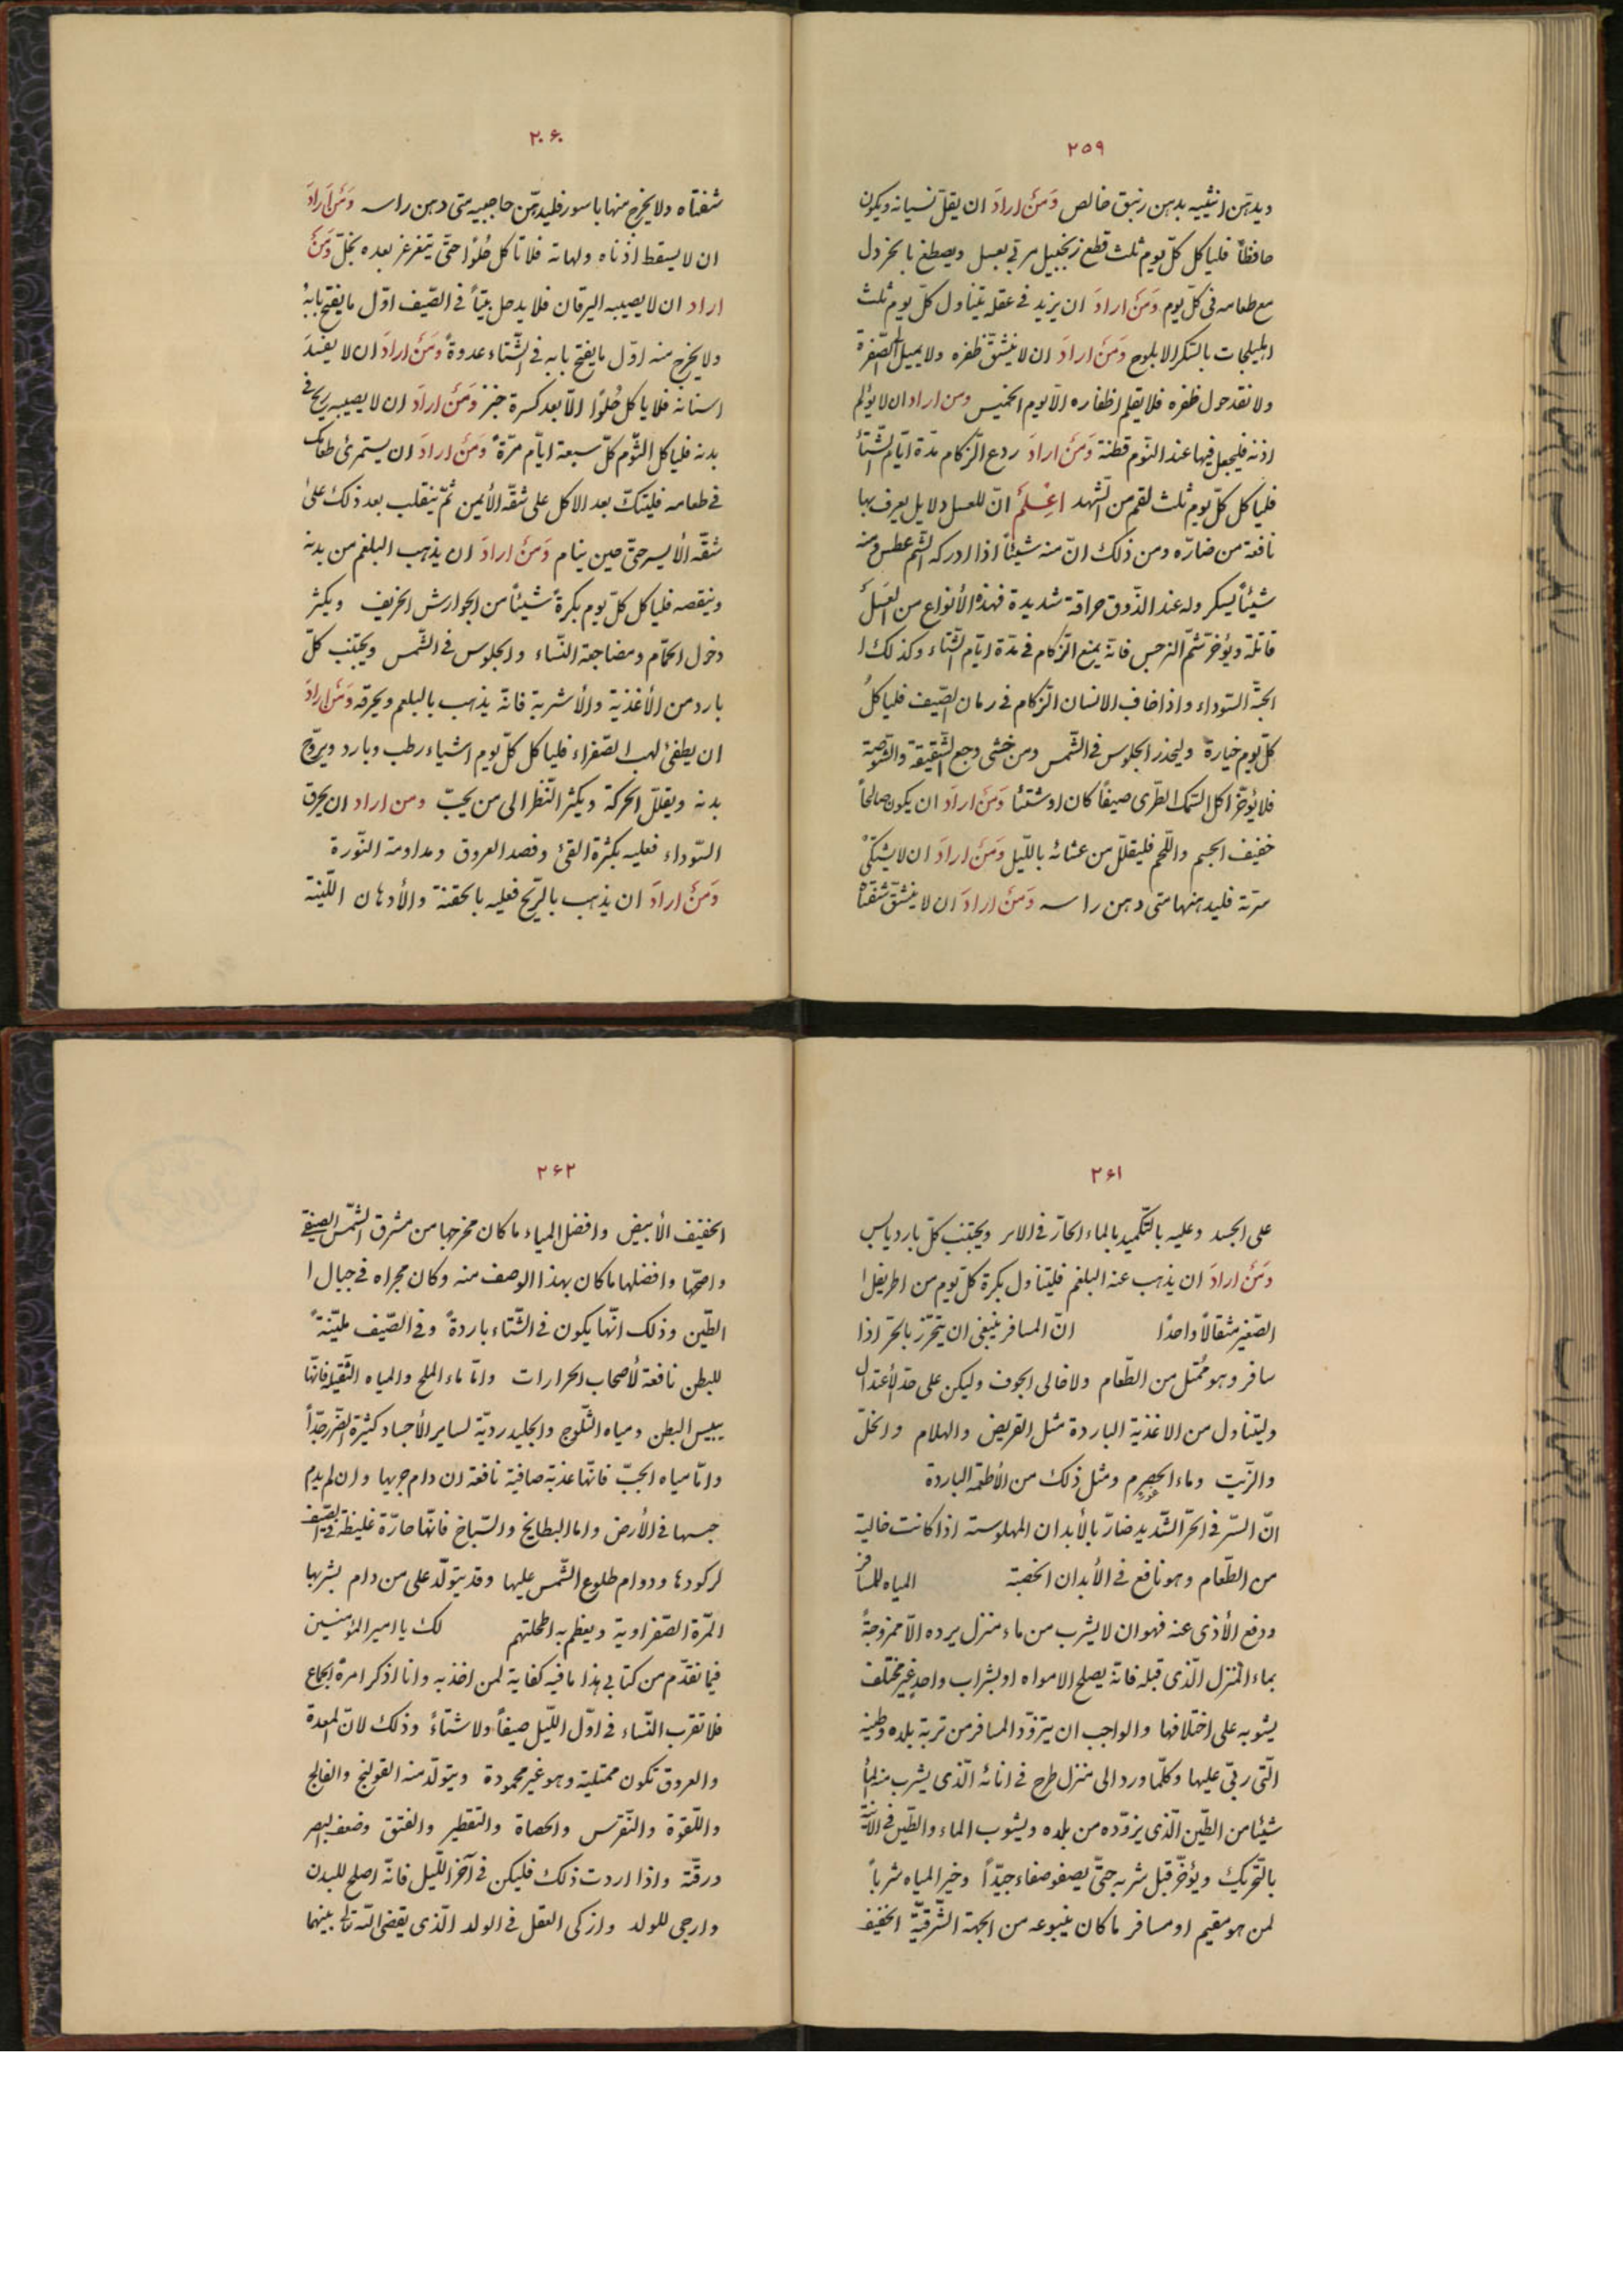 ٢٥٩
ويدهن انثييه بدهن زنبق خالص وَمَنْ ارادَ ان يقلّ نسيانه ويكون
حافظاً فلياكل كلّ يوم ثلث قطع زنجبيل مربّى بعسل ويصطبغ بالخردل
مع طعامه فى كلّ يوم وَمَنْ ارادَ ان يزيد فى عقله يتناول كلّ يوم ثلث
اهليلجات بالسّكر الابلوج وَمَنْ ارادَ ان لا ينشقّ ظفره ولا يميل الى الصّفرة
ولا نقد حول ظفره فلا يقلم اظفاره الّا يوم الخميس ومن اراد ان لا يؤلم
اذنه فليجعل فيها عند النّوم قطنة وَمَنْ ارادَ ردع الزّكام مدّة ايّام الشّتاءُ
فلياكل كلّ يوم ثلث لقم من الشّهد اعْلَمْ انّ للعسل دلايل يعرف بها
نافعة من ضارّه ومن ذلك انّ منه شيئاً اذا ادركه الشّم عطس ومنه
شيئاً يسكر وله عند الذّوق حراقة شديدة فهذه الأنواع من العَسَل
قاتلة ويؤخر شمّ النرجس فانّه يمنع الزّكام فى مدّة ايّام الشّتاء وكذلك ا
الحبّة السّوداء واذا خاف الانسان الزّكام فى زمان الصّيف فلياكلُ
كلّ يوم خيارة وليحذر الجلوس فى الشّمس ومن خشى وجع الشّقيقة والشّوصة
فلا يؤخّر اكل السّمك الطّرى صيفاً كان او شتئا وَمَنْ ارادَ ان يكون صالحاً
خفيف الجسم واللّحم فليقلّل من عشائه باللّيل وَمَنْ ارادَ ان لا يشتكى
سرّته فليدهنها متى دهن راسه وَمَنْ ارادَ ان لا ينشقّ شفتاه
٢٠۶٠
شفتاه ولا يخرج منها باسور فليدهّن حاجبيه متى دهن راسه وَمَنْ ارادَ
ان لا يسقط اذناه ولهاته فلا تاكل حُلوًا حتّى يتغرغر بعده بخلّ وَمَنْ
اراد ان لا يصيبه اليرقان فلا يدخل بيتاً فى الصّيف اوّل ما يفتح بابهُ
ولا يخرج منه اوّل ما يفتح بابه فى الشّتاء غدوةً وَمَنْ ارادَ ان لا يفسدَ
اسنانه فلا ياكل حُلوًا الّا بعد كسرة خبز وَمَنْ ارادَ ان لا يصيبه ريح فى
بدنه فلياكل الثّوم كلّ سبعة ايّام مرّةً وَمَنْ ارادَ ان يستمرئ طعامك
فى طعامه فليتكّ بعد الاكل على شقّه الأيمن ثمّ ينقلب بعد ذلك علىٰ
شقّه الأيسر حتى حين ينام وَمَنْ ارادَ ان يذهب البلغم من بدنه
وينقصه فلياكل كلّ يوم بكرةً شيئاً من الجوارش الحرّيف ويكثر
دخول الحمّام ومضاجعة النّساء والجلوس فى الشّمس ويجتنب كلّ
بارد من الأغذية والأشربة فانّه يذهب بالبلغم ويحرقه وَمَنْ ارادَ
ان يطفئ لهب الصّفراء فلياكل كلّ يوم اشياء رطب وبارد ويروّح
بدنه ويقلّل الحركة ويكثر النّظر الى من يحبّ ومن اراد ان يحرق
السّوداء فعليه بكثرة القئ وفصد العروق ومداومة النّورة
وَمَنْ ارادَ ان يذهب بالرّيح فعليه بالحقنة والأدهان اللّينة
٢۶١
على الجسد وعليه بالتّكميد بالماء الحارّ فى الابر ويجتنب كلّ بارد يابس
وَمَنْ ارادَ ان يذهب عنه البلغم فليتناول بكرة كلّ يوم من اطريفل ا
الصّغير مثقالًا واحدًا انّ المسافر ينبغى ان يتحرّز بالحرّ اذا
سافر وهو ممُتل من الطّعام ولا خالى الجوف وليكن على حدّ الأعتدال
وليتناول من الاغذية الباردة مثل القريض والهلام والخلّ
والزّيت وماء الحصرم ومثل ذلك من الأطعمة الباردة
انّ السّير فى الحرّ الشّديد ضارّ بالأبدان المهلوسة اذا كانت خالية
من الطّعام وهو نافع فى الأبدان الخصبة المياه للمسافر
ودفع الأذى عنه فهو ان لا يشرب من ماء منزل يرده الّا ممزوجةً
بماء المنزل الّذى قبله فانّه يصلح الامواه او بشراب واحدٍ غير مختلف
يشوبه على اختلافها والواجب ان يتزوّد المسافر من تربة بلده وطينه
الّتى ربّى عليها وكلّما ورد الى منزل طرح فى انائه الّذى يشرب منه الماءُ
شيئا من الطّين الّذى يزوّده من بلده ويشوب الماء والطّين فى الآنية
بالتّحريك ويؤخّر قبل شربه حتّى يصفو صفاء جيّداً وخير المياه شرباً
لمن هو مقيم او مسافر ما كان ينبوعه من الجهة الشّرقيّة الخفيف
٢۶٢
الخفيف الأبيض وافضل المياء ما كان مخرجها من مشرق الشّمس الصيفى
واصحّها وافضلها ما كان بهذا الوصف منه وكان مجراه فى جبال ا
الطّين وذلك انّها يكون فى الشّتاء باردةً وفى الصّيف مليّنةً
للبطن نافعة لأصحاب الحرارات وامّا ماء الملح والمياه الثّقيلة فانّها
ييبس البطن ومياه الثّلوج والجليد رديّة لساير الأجساد كثيرة الضّرر جدّاً
وامّا مياه الجبّ فانّها عذبة صافية نافعة ان دام جريها وان لم يدم
حبسها فى الأرض واما البطايح والسّباخ فانّها حارّة غليظة فى الصّيف
لركودها ودوام طلوع الشّمس عليها وقد يتولّد على من دام بشربها
المرّة الصّفراوية ويعظم به اطحلتهم لك يا امير المؤمنين
فيما تقدّم من كتابى هذا ما فيه كفاية لمن اخذ به وانا اذكر امرة الجماع
فلا تقرب النّساء فى اوّل اللّيل صيفاً ولا شتاءً وذلك لانّ المعدة
والعروق تكون ممتلية وهو غير محمودة ويتولّد منه القولنج والفالج
واللّقوة والنّقرس والحصاة والتّقطير والفتق وضعف البصر
ورقّته واذا اردت ذلك فليكن فى آخر اللّيل فانّه اصلح للبدن
وارجى للولد وازكى العقل فى الولد الّذى يقضى اللّه تعالى بينهما